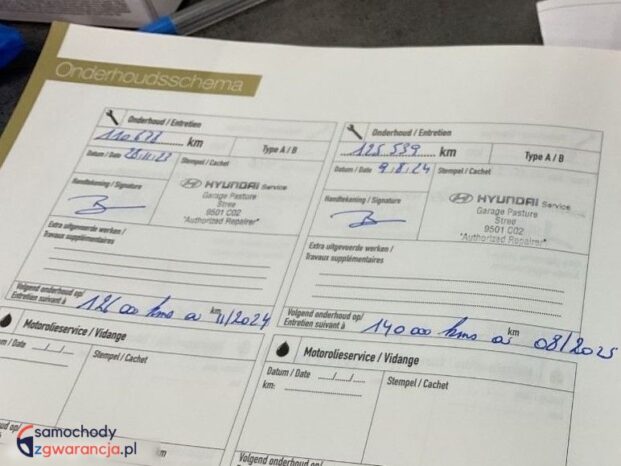 Onderhoudsschema
Onderhoud / Entretien
110.678 km
Type A / B
Datum / Date 28.11.23
Stempel / Cachet
Handtekening / Signature
HYUNDAI Service
Garage Pasture
Stree
9501 C02
"Authorized Repairer"
Extra uitgevoerde werken /
Travaux supplémentaires
Volgend onderhoud op/
Entretien suivant à 126 000 kms km 11/2024
Motorolieservice / Vidange
Datum / Date ..../..../....
Stempel / Cachet
Onderhoud / Entretien
125.539 km
Type A / B
Datum / Date 9.8.24
Stempel / Cachet
Handtekening / Signature
HYUNDAI Service
Garage Pasture
Stree
9501 C02
"Authorized Repairer"
Extra uitgevoerde werken /
Travaux supplémentaires
Volgend onderhoud op/
Entretien suivant à 140 000 kms km 08/2025
Motorolieservice / Vidange
Datum / Date ..../..../....
km:
Stempel / Cachet
Volgend onderhoud op/
samochody
zgwarancja.pl